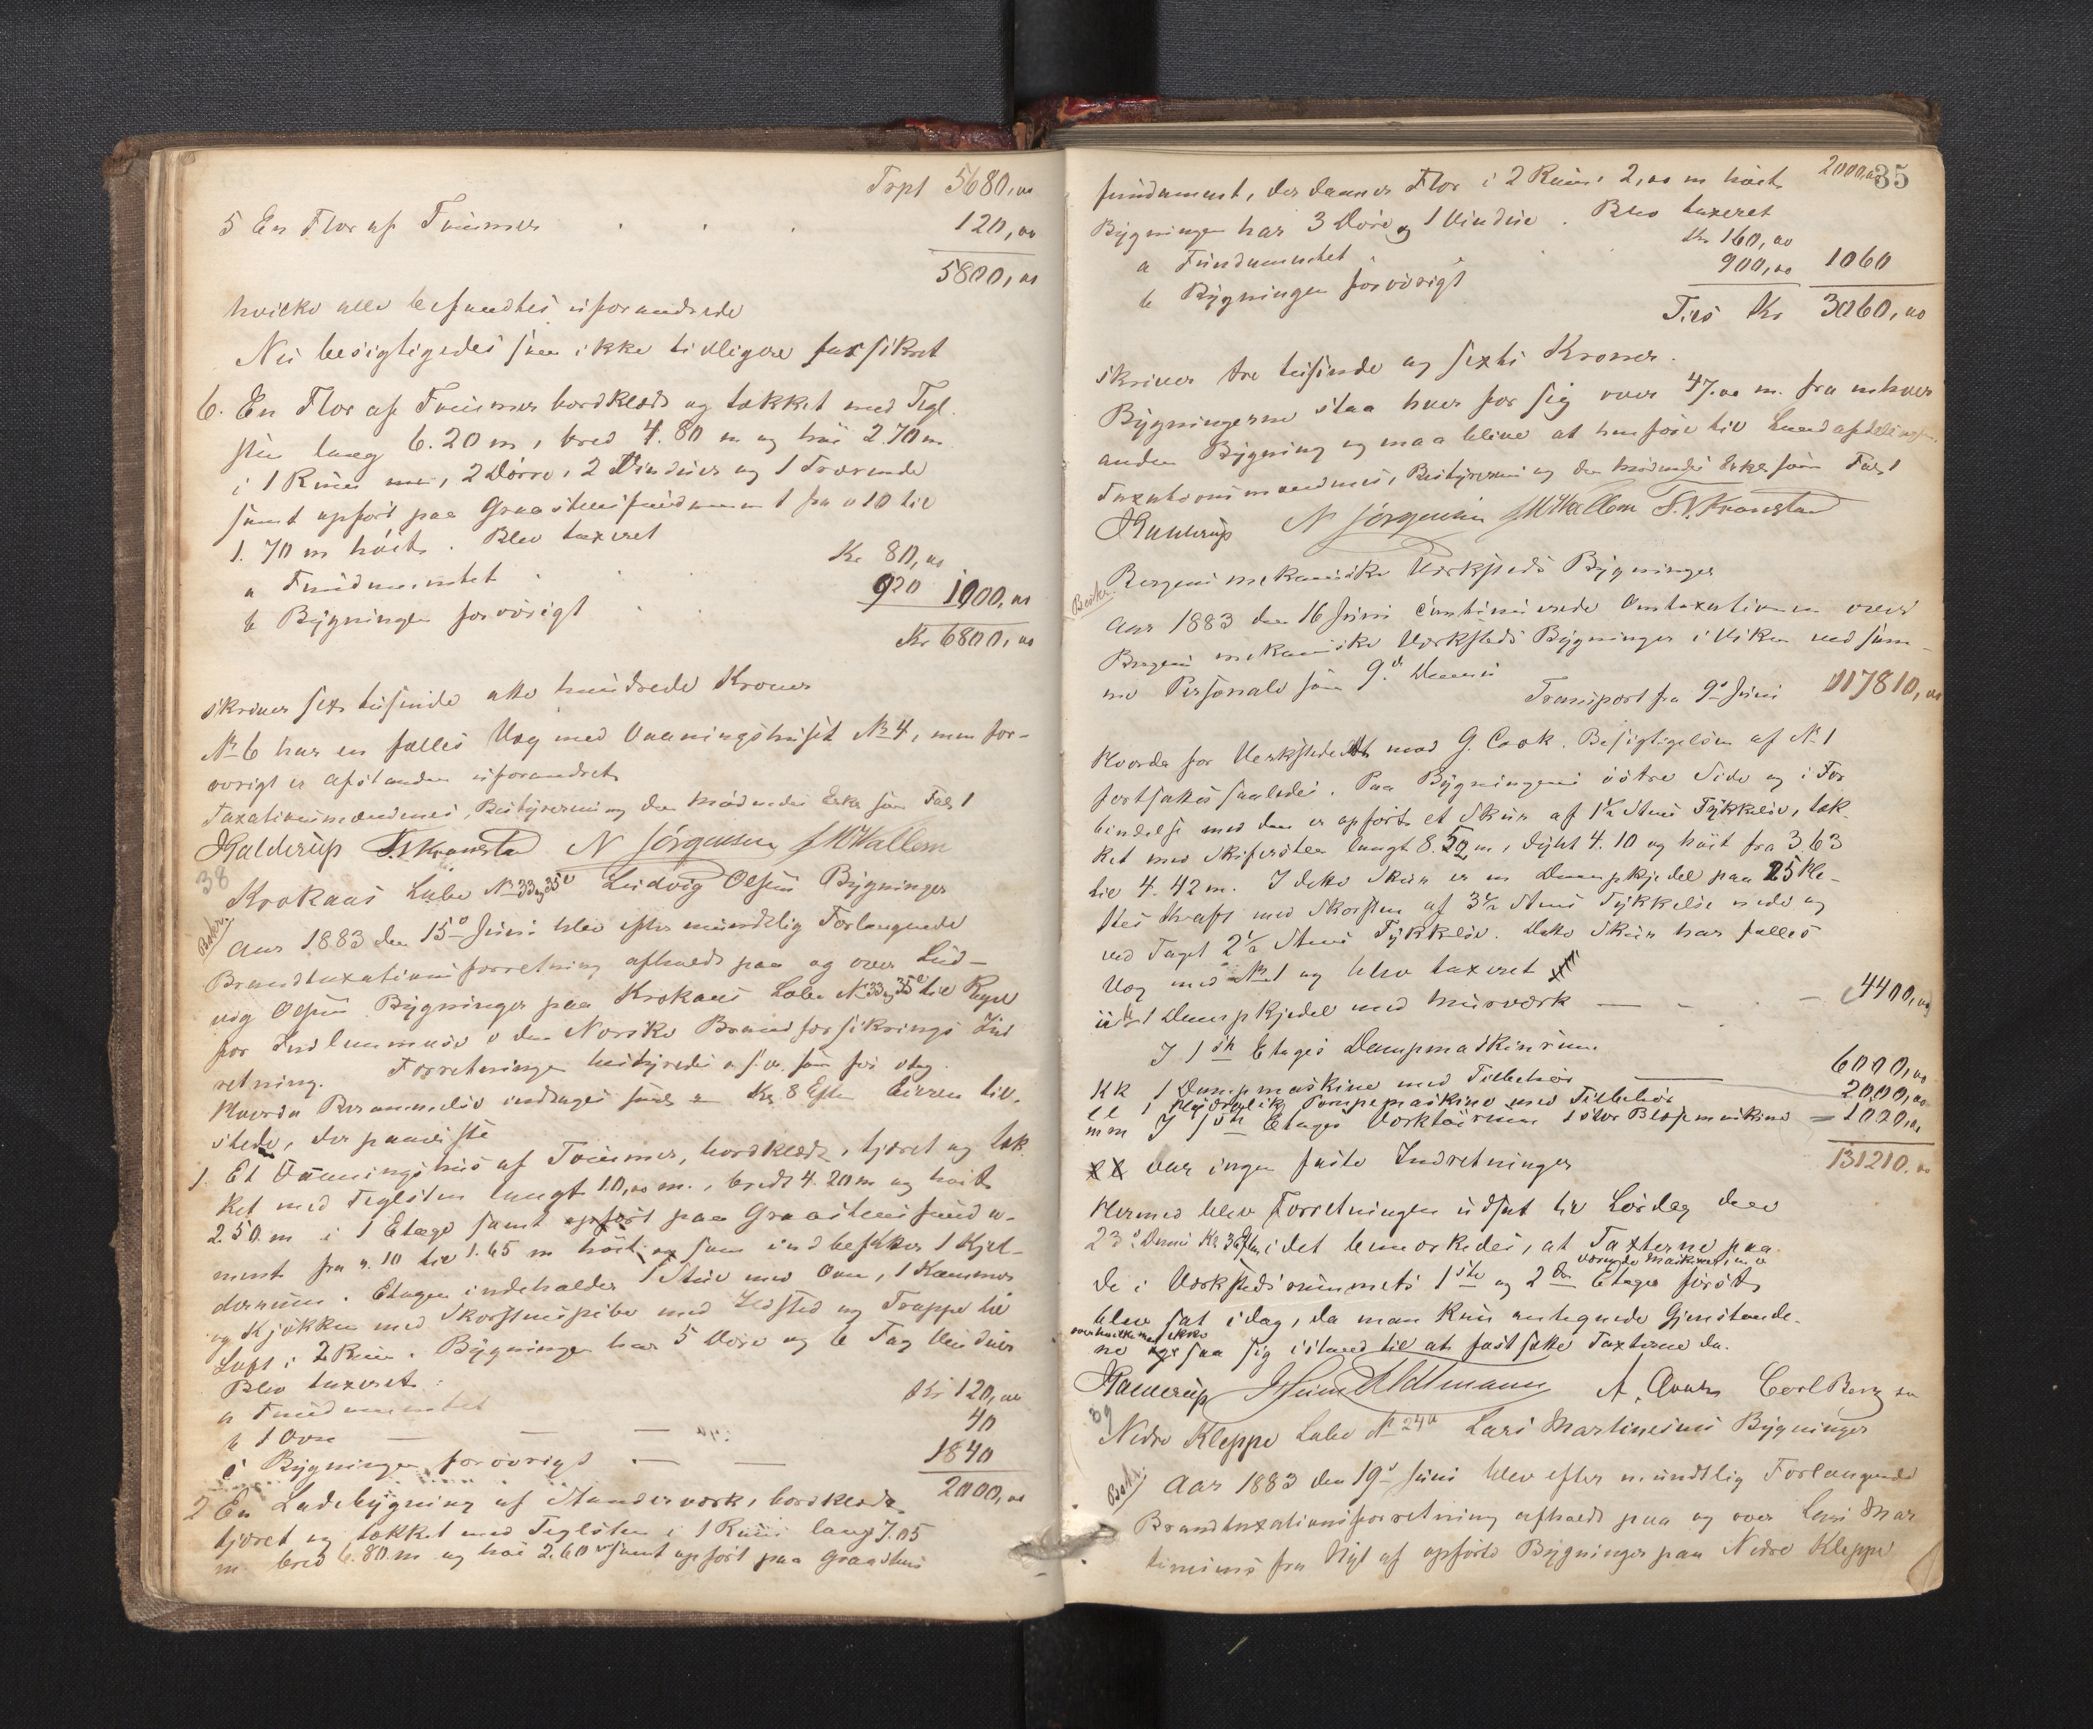 Trpt 5680,00
5 En Flor af Tømmer . . . 120,00
5800,00
hvilke alle befandtes uforandrede
Nu besigtigedes som ikke tidligere forsikret
6. En Flor af Tømmer bordklædt og tækket med Tegl-
sten lang 6.20 m, bred 4.80 m og høi 2.70 m
i 1 Rum med, 2 Dørre, 2 Vinduer og 1
samt opført paa Graastensfundament fra 0.10 til
1.70 m høit. Blev taxeret
a Fundamentet . . . Kr 80,00
b Bygningen forøvrigt . . 920 1000,00
Kr 6800,00
skriver sex tusinde otte hundrede Kroner
No 6 har en fælles Væg med Vaaningshuset No 4, men for-
øvrigt er Afstanden uforandret
Taxationsmændenes, Bestyreren og den mødendes Erkl som Fol 1
JKalderup S.V.Kronstad N Jørgensen JMWallem
38
Krokaas Labr No 33 og 35 Ludvig Olsens Bygninger
Beskr.
Aar 1883 den 15de Juni blev efter mundtlig Forlangende
Brandtaxationsforretning afholdt paa og over Lud-
vig Olsens Bygninger paa Krokaas Labr No 33 og 35 til Brug
for Indlemmelse i den Norske Brandforsikrings Ind
retning. Forretningen bestyredes o.s.v. som før
Hvorda Benævnelse Kl 8 Eftm Eieren til-
stede, der paaviste
1. Et Vaaningshus af Tømmer, bordklædt, tjæret og tæk-
ket med Teglsten langt 10,00 m., bredt 4.20 m og høit
2.50 m i 1 Etage samt opført paa Graastensfunda-
ment fra 0.10 til 1.65 m høit og som indbefatter 1 Kjel-
derrum. Etagen indeholder 1 Stue med Ovn, 1 Kammer
og Kjøkken med Skorstenspibe med Ildsted og Trappe til
Loft i 2 Rum. Bygningen har 5 Døre og 6 Fag Vinduer
Blev taxeret:
a Fundamentet Kr 120,00
b 1 Ovn — — — 40
c Bygningen forøvrigt — — 1840
2000,00
2 En Ladebygning af Standerværk, bordklædt
tjæret og tækket med Teglsten i 1 Rum lang 7.05
m bred 6.80 m og høi 2.60 m samt opført paa Graastens
2000,00 35
fundament, der danner Flor i 2 Rum, 2,00 m høit
Bygningen har 3 Døre og 1 Vindue. Blev taxeret
a Fundamentet . . Kr 160,00
b Bygningen forøvrigt 900,00 1060
Tils Kr 3060,00
skriver tre tusinde og sexti Kroner.
Bygningerne staa hver for sig over 47.00 m. fra enhver
anden Bygning og maa blive at henføre til Landafdelingen
Taxationsmændenes, Bestyreren og den mødendes Erkl som Fol 1
JKalderup N Jørgensen JMWallem S.V.Kronstad
Beskr. Bergens mekaniske Værksteds Bygninger
Aar 1883 den 16 Juni continueredes Omtaxationen over
Bergens mekaniske Værksteds Bygninger i Viken ved sam-
me Personale som 9de Dennes
Transport fra 9de Juni 117810,00
Hvorda for Værkstedet mød G. Cook. Besigtigelsen af No 1
fortsattes saaledes. Paa Bygningens østre Side og i For
bindelse med den er opført et Skur af 1½ Stens Tykkelse, tæk-
ket med Skifersten langt 8.52 m, dybt 4.10 og høit fra 3.63
til 4.42 m. I dette Skur er en Dampkjedel paa 25 He-
stes Kraft med Skorsten af 3½ Stens Tykkelse nede og
ved Taget 2½ Stens Tykkelse. Dette Skur har fælles
Væg med No 1 og blev taxeret
1 Dampkjedel med Murværk — — — 4400,00
I 1ste Etages Dampmaskinrum
kk 1 Dampmaskine med Tilbehør — 6000,00
ll 1 Hydraulik Pumpemaskine med Tilbehør 2000,00
mm I 1ste Etages Værktøirum 1 stor Blæsemaskine = 1020,00
var ingen faste Indretninger 131210.00
Hermed blev Forretningen udsat til Lørdag den
23de Dennes Kl 3 Eftm, idet bemærkedes, at Taxterne paa
de i Værkstedsrummets 1ste og 2den Etage værende Maskiner, m. v. først
blev sat idag, da man kun antegnede Gjenstande-
ne saa sig istand til at fastsætte Taxterne da.
over hvilke man ikke
JKalderup Altmann A. Carl Berg
39
Nedre Kleppe Labr No 24a Lars Martinsens Bygninger
Beskr.
Aar 1883 den 19de Juni blev efter mundtlig Forlangende
Brandtaxationsforretning afholdt paa og over Lars Mar
tinsens fra Nyt af opførte Bygninger paa Nedre Kleppe